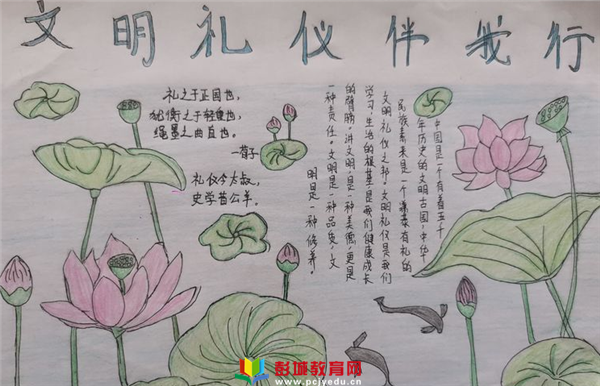 文明礼仪伴我行
礼之于正国也，
犹衡之于轻重也，
绳墨之曲直也。
—荀子
礼仪今太叔，
史学昔公羊。
中国是一个有着五千
年历史的文明古国，中华
民族素来是一个谦恭有礼的
文明礼仪之邦。文明礼仪是我们
学习、生活的根基，是我们健康成长
的臂膀。讲文明，是一种美德，更是
一种责任。文明是一种品质，文
明是一种修养。
彭城教育网
www.pcjyedu.cn